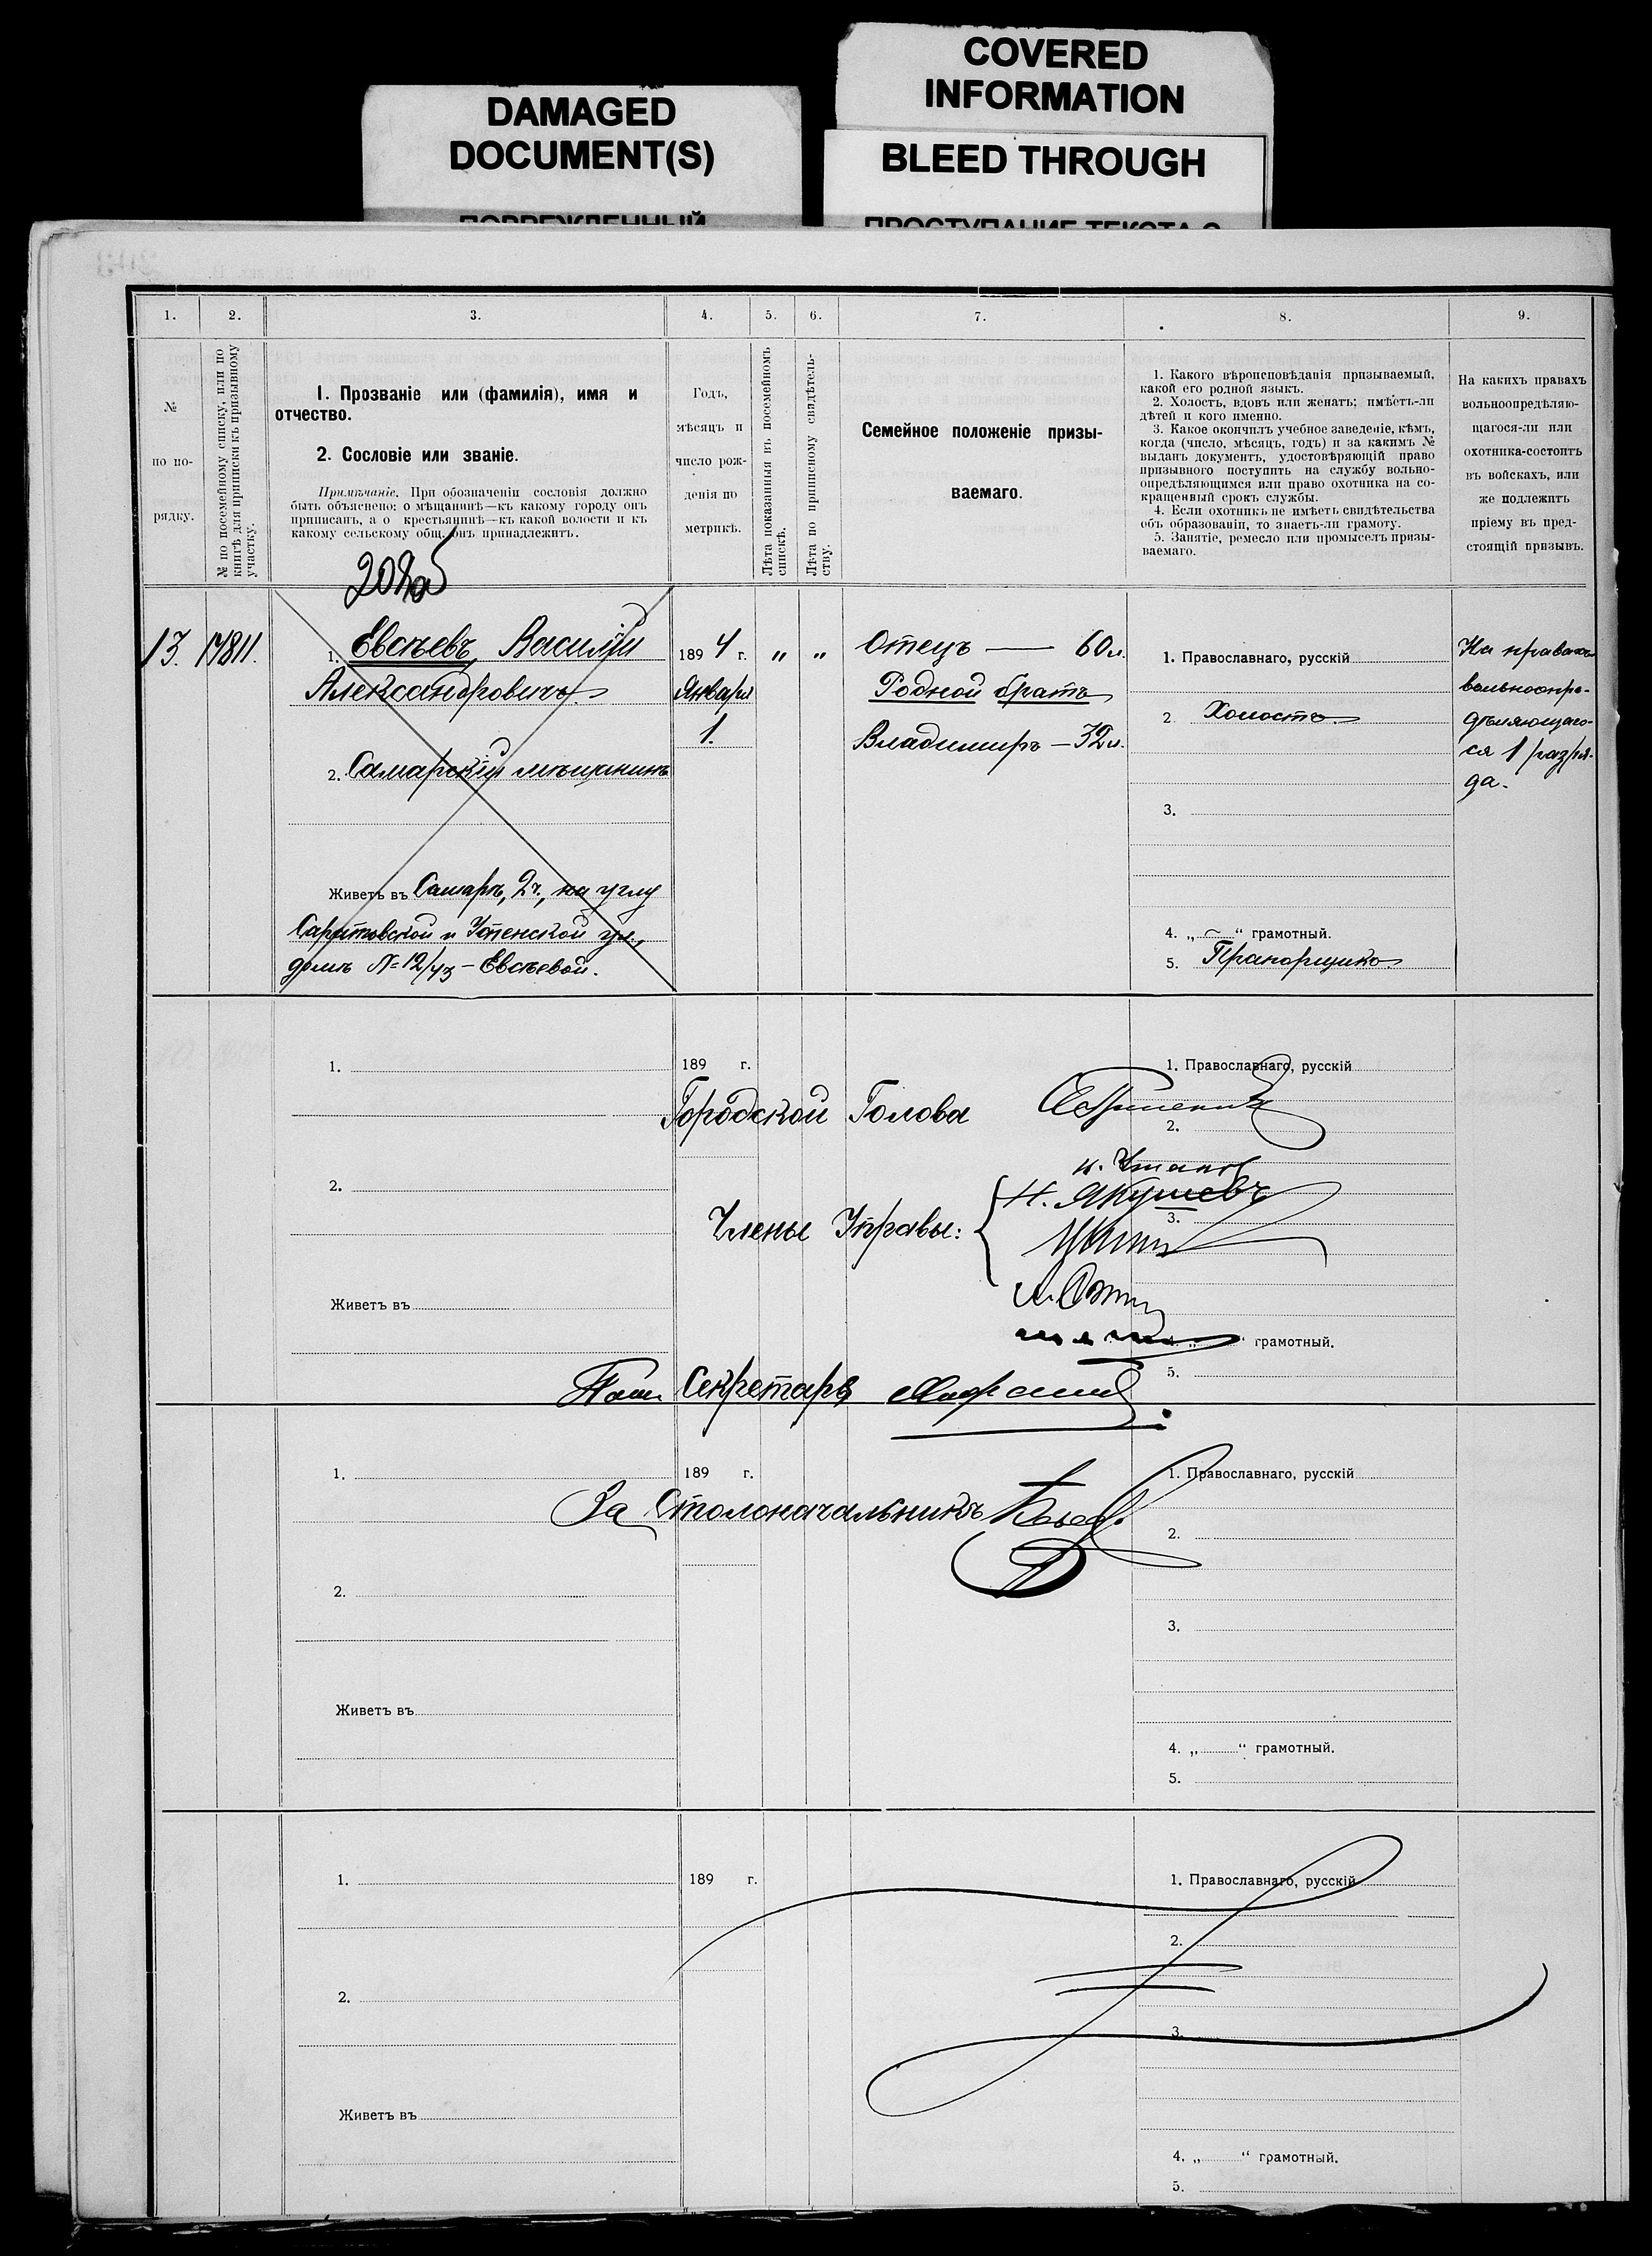 DAMAGED
DOCUMENT(S)
COVERED
INFORMATION
BLEED THROUGH
1.
2.
3.
4.
5.
6.
7.
8.
9.
№
по по-
рядку.
№ по посемейному списку, или по
книгѣ для приписки къ призывному
участку.
1. Прозваніе или (фамилія), имя и
отчество.
2. Сословіе или званіе.
Примѣчаніе. При обозначеніи сословія должно
быть объяснено: о мѣщанинѣ—къ какому городу онъ
приписанъ, а о крестьянинѣ—къ какой волости и къ
какому сельскому общ. онъ принадлежитъ.
Годъ,
мѣсяцъ и
число рож-
денія по
метрикѣ.
Лѣта показанныя въ посемейномъ
спискѣ.
Лѣта по приписному свидѣтель-
ству.
Семейное положеніе призы-
ваемаго.
1. Какого вѣроисповѣданія призываемый,
какой его родной языкъ.
2. Холостъ, вдовъ или женатъ; имѣетъ-ли
дѣтей и кого именно.
3. Какое окончилъ учебное заведеніе, кѣмъ,
когда (число, мѣсяцъ, годъ) и за какимъ №
выданъ документъ, удостовѣряющій право
призывного поступить на службу вольно-
опредѣляющимся или право охотника на со-
кращенный срокъ службы.
4. Если охотникъ не имѣетъ свидѣтельства
объ образованіи, то знаетъ-ли грамоту.
5. Занятіе, ремесло или промыселъ призы-
ваемаго.
На какихъ правахъ
вольноопредѣляю-
щагося-ли или
охотника-состоитъ
въ войскахъ, или
же подлежитъ
пріему въ пред-
стоящій призывъ.
13.
1. Евсѣевъ, Василій
Александровичъ.
2. Самарскій мѣщанинъ
Живетъ въ Самарѣ, 2ч., на углу
Саратовской и Успенской ул.,
домъ № 12/43 – Евсѣевой.
1894 г.
Января
1.
„ „
Отецъ — 60 л.
Родной братъ
Владимиръ – 32 л.
1. Православнаго, русскій
2. Холостъ.
3.
4. „ ~ “ грамотный.
5. Прапорщикъ
На правахъ
вольноопре-
дѣляющаго-
ся 1 разря-
да.
1.
2.
Живетъ въ
189 г.
1. Православнаго, русскій
2.
3.
грамотный.
5.
Городской Голова
Члены Управы:
Н. Якушевъ
Секретарь
1.
2.
Живетъ въ
189 г.
За Столоначальникъ
1. Православнаго, русскій
2.
3.
4. „ “ грамотный.
5.
1.
2.
Живетъ въ
189 г.
1. Православнаго, русскій
2.
3.
4. „ “ грамотный.
5.